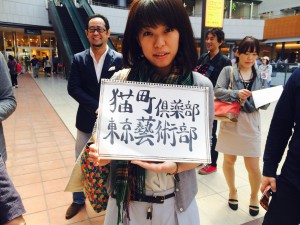 猫町倶楽部
東京藝術部